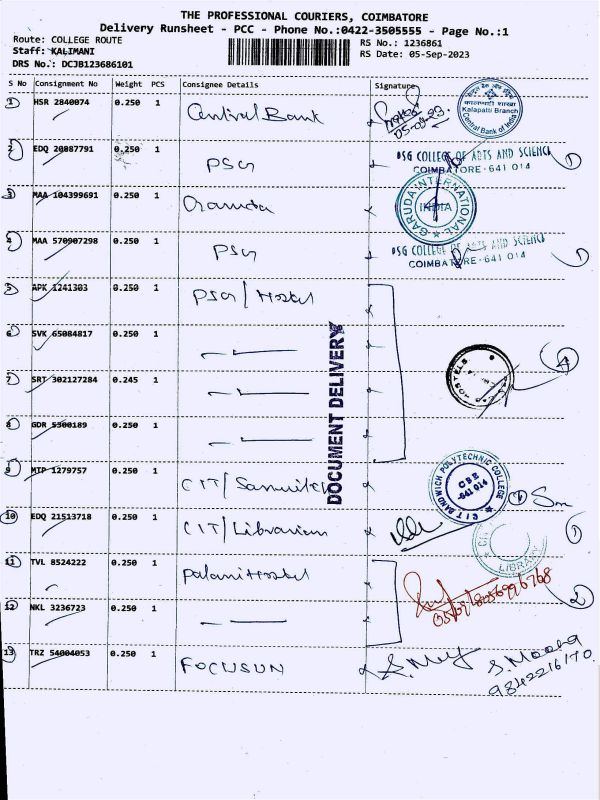 THE PROFESSIONAL COURIERS, COIMBATORE
Delivery Runsheet - PCC - Phone No.:0422-3505555 - Page No.:1
Route: COLLEGE ROUTE
RS No.: 1236861
Staff: KALIMANI
RS Date: 05-Sep-2023
DRS No.: DCJB123686101
S No Consignment No Weight PCS Consignee Details Signature
1 HSR 2840074 0.250 1 Central Bank
05-09-23
Kalapatti Branch
Central Bank of India
2 EDQ 20887791 0.250 1 PSG
PSG COLLEGE OF ARTS AND SCIENCE
COIMBATORE-641 014
1
3 MAA 104399691 0.250 1
GARUDA INTERNATIONAL
INDIA
4 MAA 570907298 0.250 1 PSG
PSG COLLEGE OF ARTS AND SCIENCE
COIMBATORE-641 014
1
5 APK 1241303 0.250 1 PSG/Hostel
6 SVK 65084817 0.250 1
7 SRT 302127284 0.245 1
HOSTELS
4
8 GDR 5300189 0.250 1
DOCUMENT DELIVERY
9 MTP 1279757 0.250 1 CIT/
CIT SANDWICH POLYTECHNIC COLLEGE
CSE
-641 014
10 EDQ 21513718 0.250 1 CIT/Librarian
LIBRARY
1
11 TVL 8524222 0.250 1 Palani Hostel
2
12 NKL 3236723 0.250 1
13 TRZ 54004053 0.250 1 FOCUSUN
9842216170